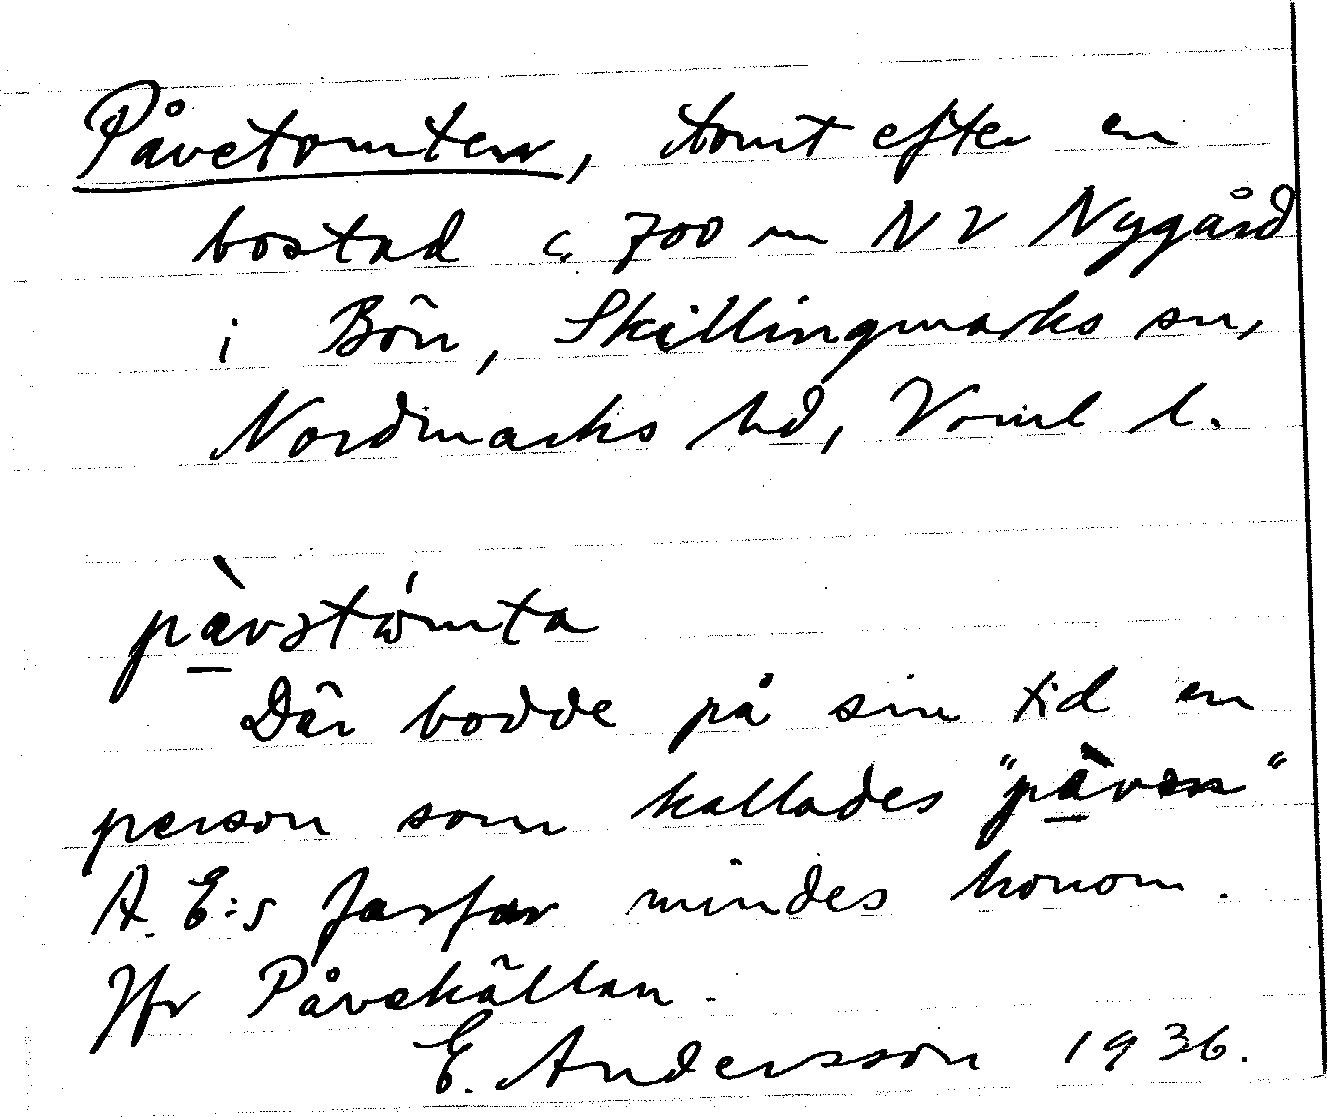 Påvetomten, tomt efter en
bostad c. 700 m NV Nygård
i Bön, Skillingmarks sn,
Nordmarks hd, Värml l.
pàvstómta
Där bodde på sin tid en
person som kallades "pàven"
A. E:s farfar mindes honom.
Jfr Påvekällan.
E. Andersson 1936.